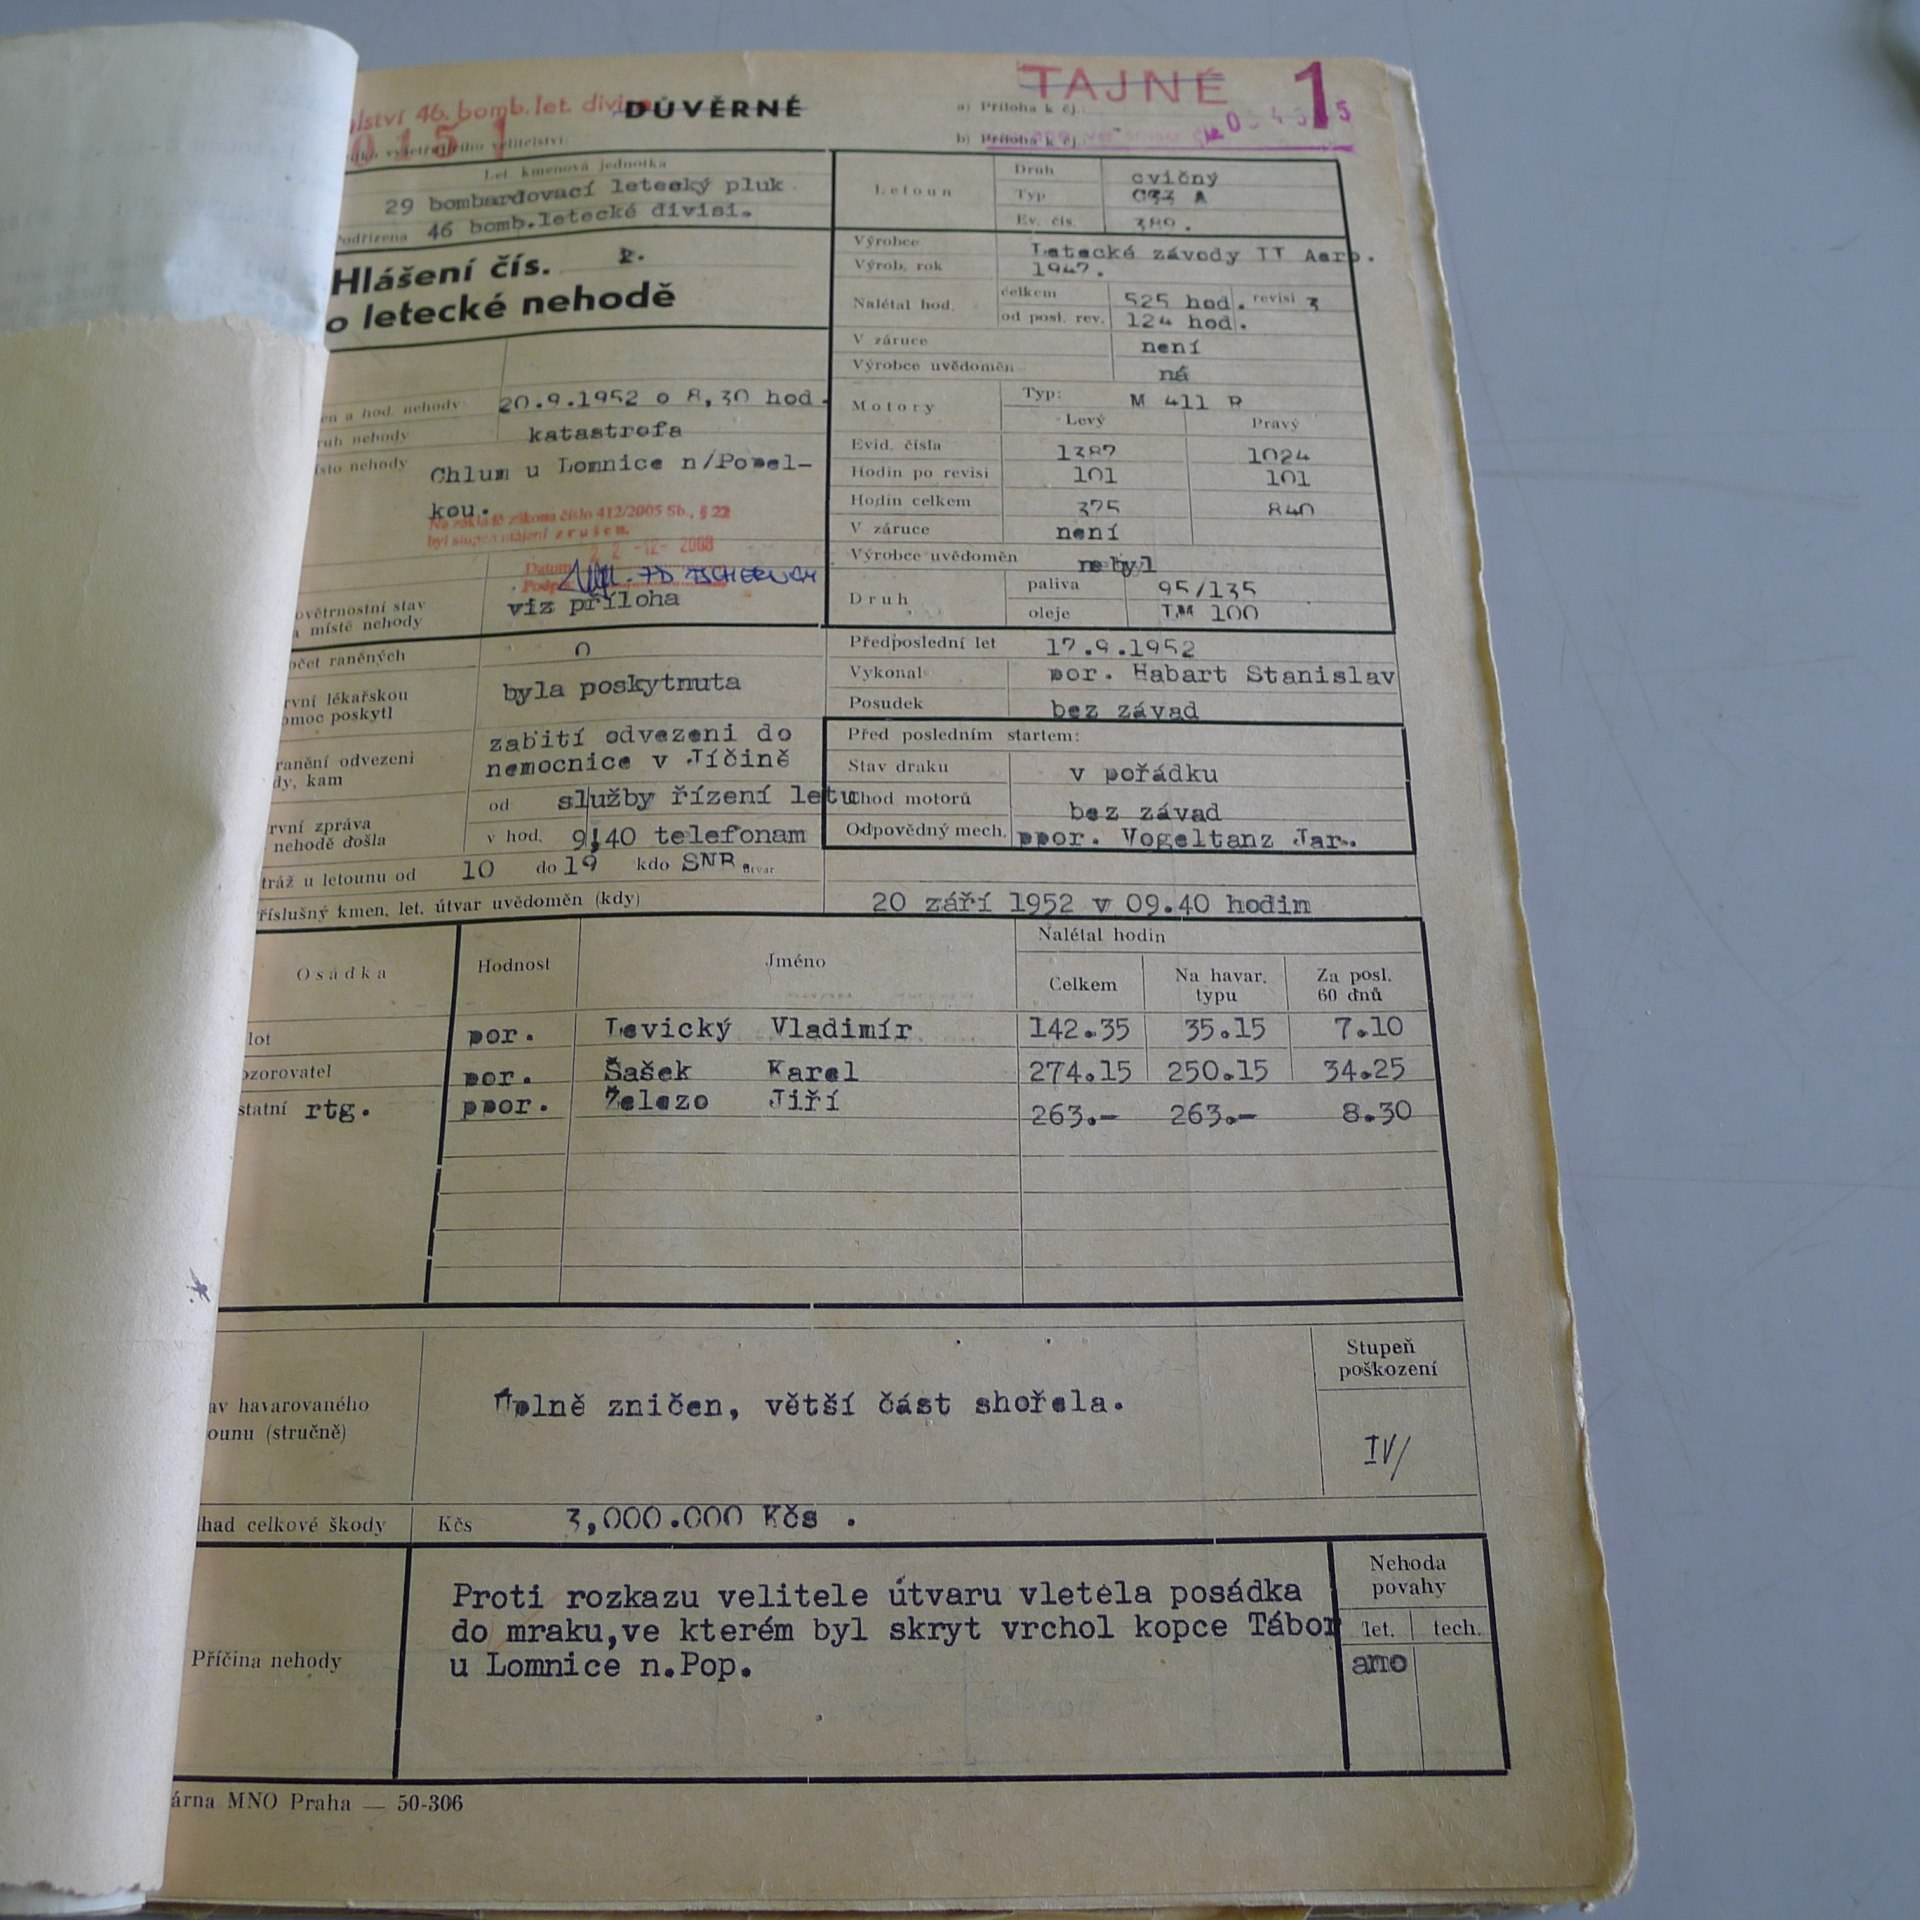 lství 46. bomb. let. divize
DŮVĚRNÉ
TAJNÉ
1
a) Příloha k čj.
b) Příloha k čj.
0151
vyšetřujícího velitelství:
Let. kmenová jednotka
29 bombardovací letecký pluk
Podřízena 46 bomb.letecké divisi.
Letoun
Druh cvičný
Typ C33 A
Ev. čís. 389.
Hlášení čís. 2.
o letecké nehodě
Výrobce Letecké závody II Aero.
Výrob. rok 1947.
Nalétal hod. celkem 525 hod. revisí 3
od posl. rev. 124 hod.
V záruce není
Výrobce uvědoměn ná
en a hod. nehody 20.9.1952 o 8,30 hod.
ruh nehody katastrofa
ísto nehody Chlum u Lomnice n/Popel-
kou.
Na základě zákona číslo 412/2005 Sb., § 22
byl stupeň utajení zrušen.
Datum 22 -12- 2008
Podpis
ovětrnostní stav
a místě nehody viz příloha
Motory Typ: M 411 R
Levý Pravý
Evid. čísla 1387 1024
Hodin po revisi 101 101
Hodin celkem 375 840
V záruce není
Výrobce uvědoměn nebyl
Druh paliva 95/135
oleje TM 100
očet raněných 0
rvní lékařskou
omoc poskytl byla poskytnuta
ranění odvezeni
dy, kam zabití odvezeni do
nemocnice v Jíčině
rvní zpráva
nehodě došla od služby řízení letu
v hod. 9,40 telefonam
tráž u letounu od 10 do 19 kdo SNB. útvar
říslušný kmen. let. útvar uvědoměn (kdy) 20 září 1952 v 09.40 hodin
Předposlední let 17.9.1952
Vykonal por. Habart Stanislav
Posudek bez závad
Před posledním startem:
Stav draku v pořádku
Chod motorů bez závad
Odpovědný mech. ppor. Vogeltanz Jar.
Osádka Hodnost Jméno Nalétal hodin
Celkem Na havar. typu Za posl. 60 dnů
lot por. Levický Vladimír 142.35 35.15 7.10
ozorovatel por. Šašek Karel 274.15 250.15 34.25
statní rtg. ppor. Železo Jiří 263.- 263.- 8.30
av havarovaného
ounu (stručně)
Úplně zničen, větší část shořela.
Stupeň
poškození
IV/
had celkové škody Kčs 3,000.000 Kčs .
Příčina nehody
Proti rozkazu velitele útvaru vletěla posádka
do mraku,ve kterém byl skryt vrchol kopce Tábor
u Lomnice n.Pop.
Nehoda
povahy
let. tech.
ano
árna MNO Praha — 50-306